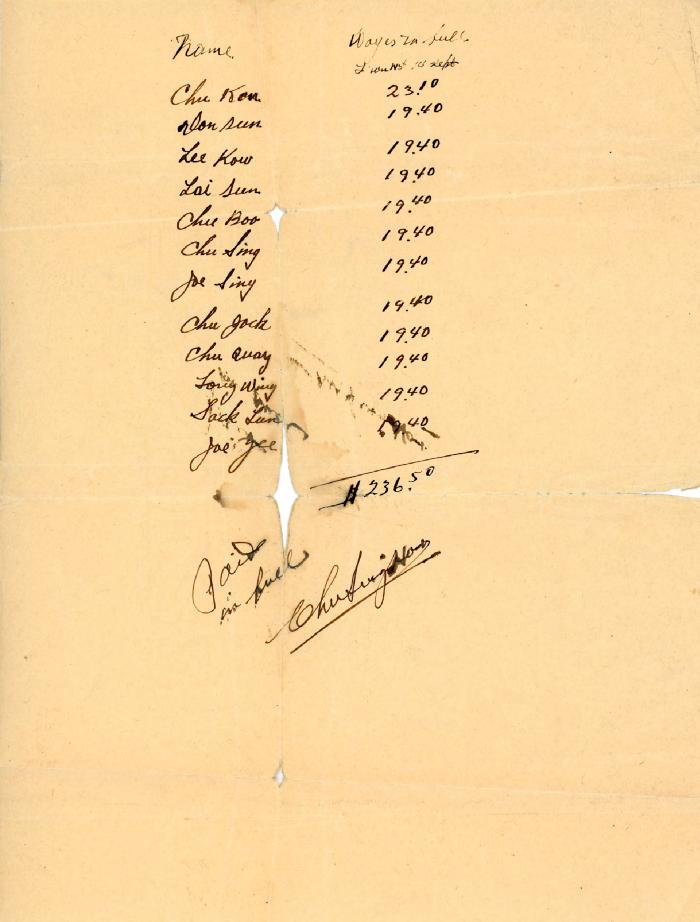 Name Wages in full
Chu Kon 23.10
Don Sun 19.40
Lee Kow 19.40
Lai Sun 19.40
Chu Boo 19.40
Chu Sing 19.40
Joe Sing 19.40
Chu Jock 19.40
Chu Quay 19.40
Long Wing 19.40
Sack Lun 19.40
Joe Gee 19.40
$236.50
Paid
in full
Chu Sing